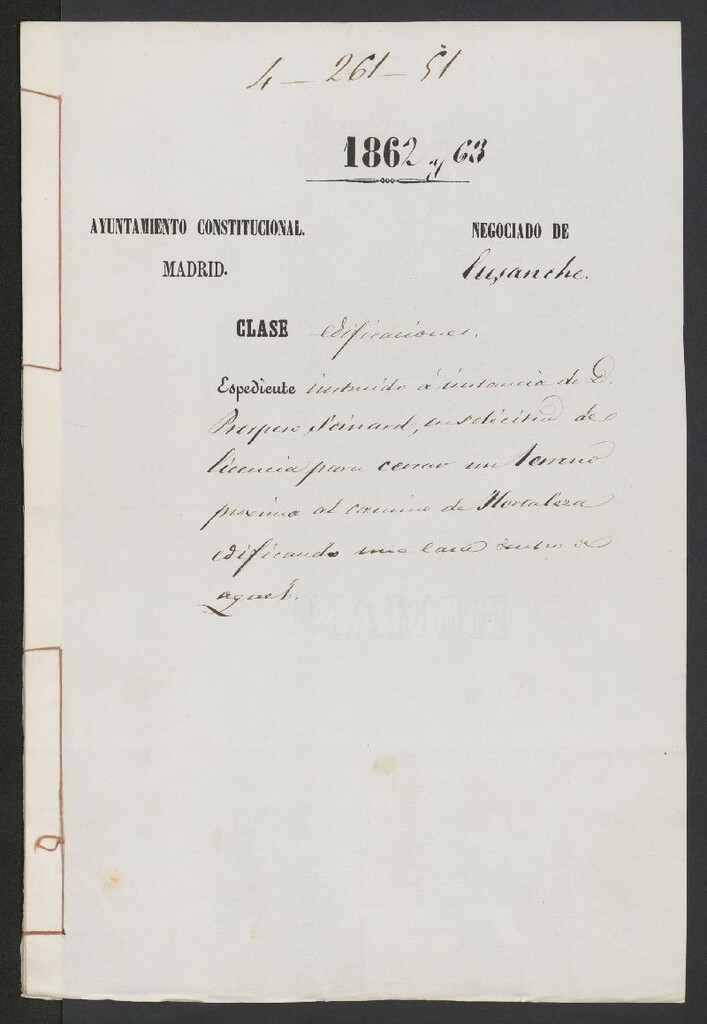 4 — 261 — 51
1862 y 63
AYUNTAMIENTO CONSTITUCIONAL.
MADRID.
NEGOCIADO DE
Ensanche.
CLASE edificaciones.
Espediente instruido á instancia de D.
Prospero Soinard, en solicitud de
licencia para cerrar un terreno
proximo al camino de Hortaleza
edificando una casa dentro de
aquel.